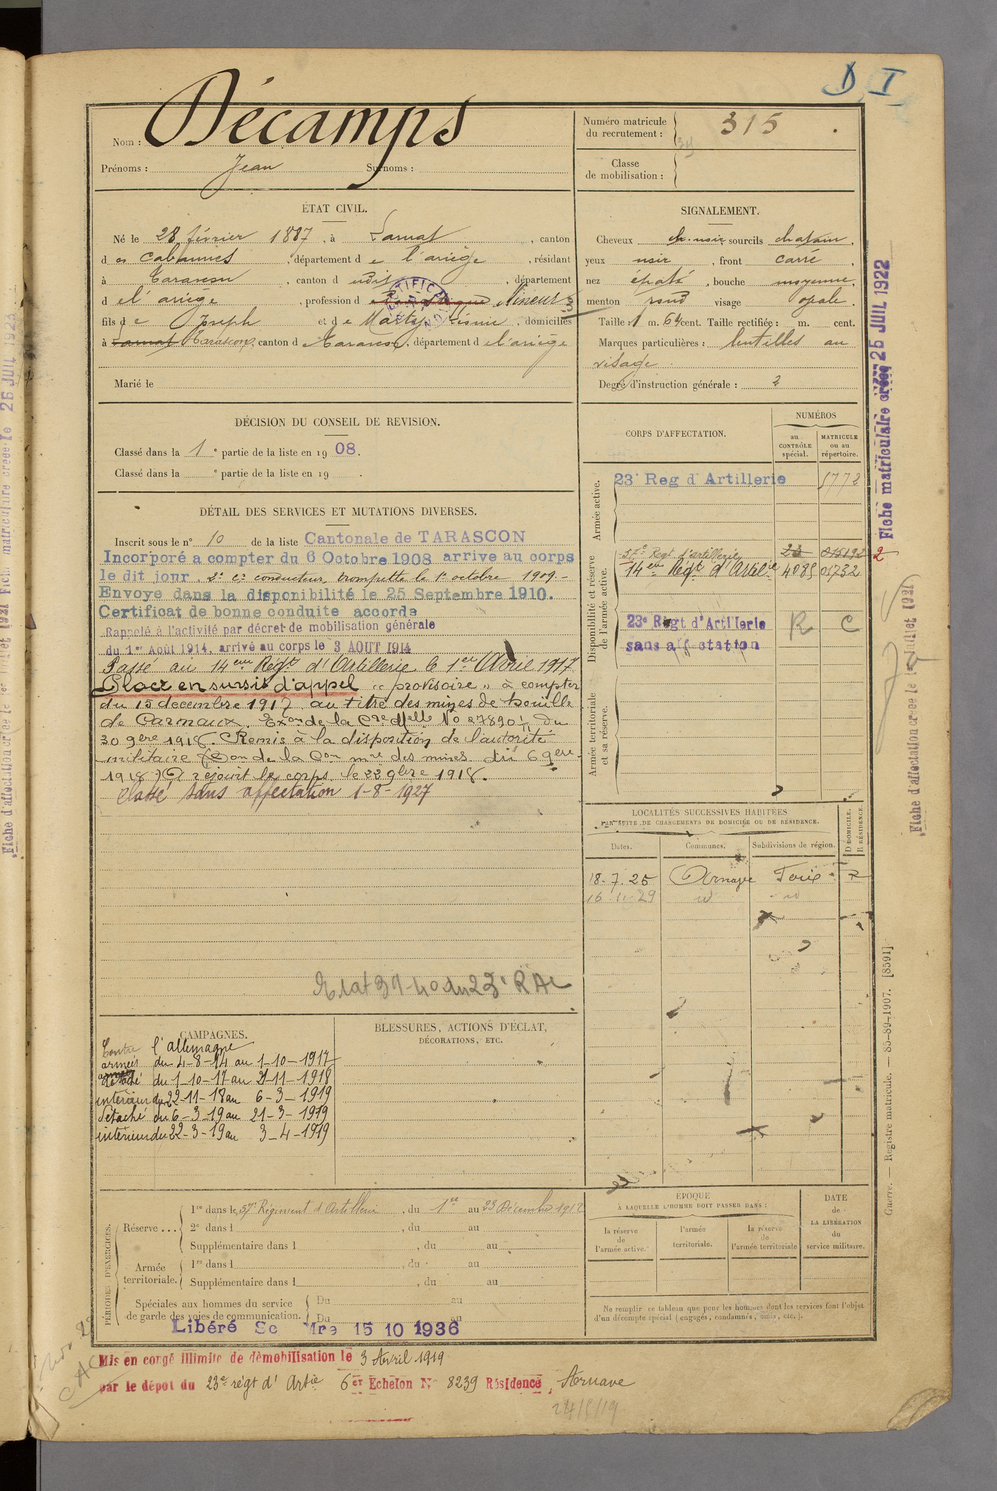 D I
Nom : Décamps
Prénoms : Jean Surnoms :
Numéro matricule
du recrutement : 315
Classe
de mobilisation :
ÉTAT CIVIL.
Né le 28 février 1887, à Larnat, canton
d es Cabannes, département d e l'ariège, résidant
à Tarascon, canton d udit, département
d e l'ariège, profession d Mineur
fils d e Joseph et d e Martys, domiciliés
à Larnat Tarascon, canton d e Tarascon, département d e l'ariège
Marié le
SIGNALEMENT.
Cheveux ch. noir sourcils chatain,
yeux noir, front carré
nez épaté, bouche moyenne,
menton rond visage ovale.
Taille : 1 m. 64 cent. Taille rectifiée : m. cent.
Marques particulières : lentilles au
visage
Degré d'instruction générale : 2
DÉCISION DU CONSEIL DE REVISION.
Classé dans la 1e partie de la liste en 1908.
Classé dans la e partie de la liste en 19 .
CORPS D'AFFECTATION.
NUMÉROS
au
CONTRÔLE
spécial.
MATRICULE
ou au
répertoire.
Armée active.
23e Reg d'Artillerie 5772
Disponibilité et réserve
de l'armée active.
37e Regt d'artillerie
14eme Regt d'Artie 4085 01732
23e Regt d'Artillerie R C
sans affectation
Armée territoriale
et sa réserve.
DÉTAIL DES SERVICES ET MUTATIONS DIVERSES.
Inscrit sous le n° 10 de la liste Cantonale de TARASCON
Incorporé a compter du 6 Octobre 1908 arrive au corps
le dit jour 2e cr conducteur, trompette le 1er octobre 1909.-
Envoye dans la disponibilité le 25 Septembre 1910.
Certificat de bonne conduite accorde
Rappelé à l'activité par décret de mobilisation générale
du 1er Août 1914, arrivé au corps le 3 AOUT 1914
Passé au 14eme Regt d'Artillerie le 1er Avril 1917
Placé en sursis d'appel "provisoire" à compter
du 15 decembre 1917 au titre des mines de houille
de Carmaux. Exon de la Cre Melle No 27890 du
30 9bre 1918. Remis à la disposition de l'autorité
militaire (Don de la Con mre des mines du 6 9bre
1918) A rejoint le corps le 22 9bre 1918.
Classé sans affectation 1-8-1927
Etat 39-40 du 23e RAC
LOCALITÉS SUCCESSIVES HABITÉES
PAR SUITE DE CHANGEMENTS DE DOMICILE OU DE RÉSIDENCE.
Dates. Communes. Subdivisions de région. D DOMICILE. R RÉSIDENCE.
18-7-25 Arnave Foix R
CAMPAGNES.
Contre l'allemagne
armées du 4-8-14 au 1-10-1917
détaché du 1-10-17 au 21-11-1918
intérieur du 22-11-18 au 6-3-1919
détaché du 6-3-19 au 21-3-1919
intérieur du 22-3-19 au 3-4-1919
BLESSURES, ACTIONS D'ÉCLAT,
DÉCORATIONS, ETC.
PÉRIODES D'EXERCICES.
Réserve ... 1re dans le 37e Régiment d'Artillerie, du 1er au 23 Décembre 1912
2e dans l , du au
Supplémentaire dans l , du au
Armée
territoriale. 1re dans l , du au
Supplémentaire dans l , du au
Spéciales aux hommes du service
de garde des voies de communication. Du au
Du au
Libéré Sc Mre 15 10 1936
ÉPOQUE
À LAQUELLE L'HOMME DOIT PASSER DANS :
la réserve
de
l'armée active.
l'armée
territoriale.
la réserve
de
l'armée territoriale
DATE
de
LA LIBÉRATION
du
service militaire.
Ne remplir ce tableau que pour les hommes dont les services font l'objet
d'un décompte spécial (engagés, condamnés, omis, etc.).
Mis en congé illimité de démobilisation le 3 Avril 1919
par le dépot du 23e régt d'Artie 6er Echelon No 8239 Résidence, Arnave
Fiche matriculaire créée le 25 JUIL 1922
Fiche d'affectation créée le 1er Juillet 1921
Guerre. — Registre matricule. — 85-89-1907. [8591]